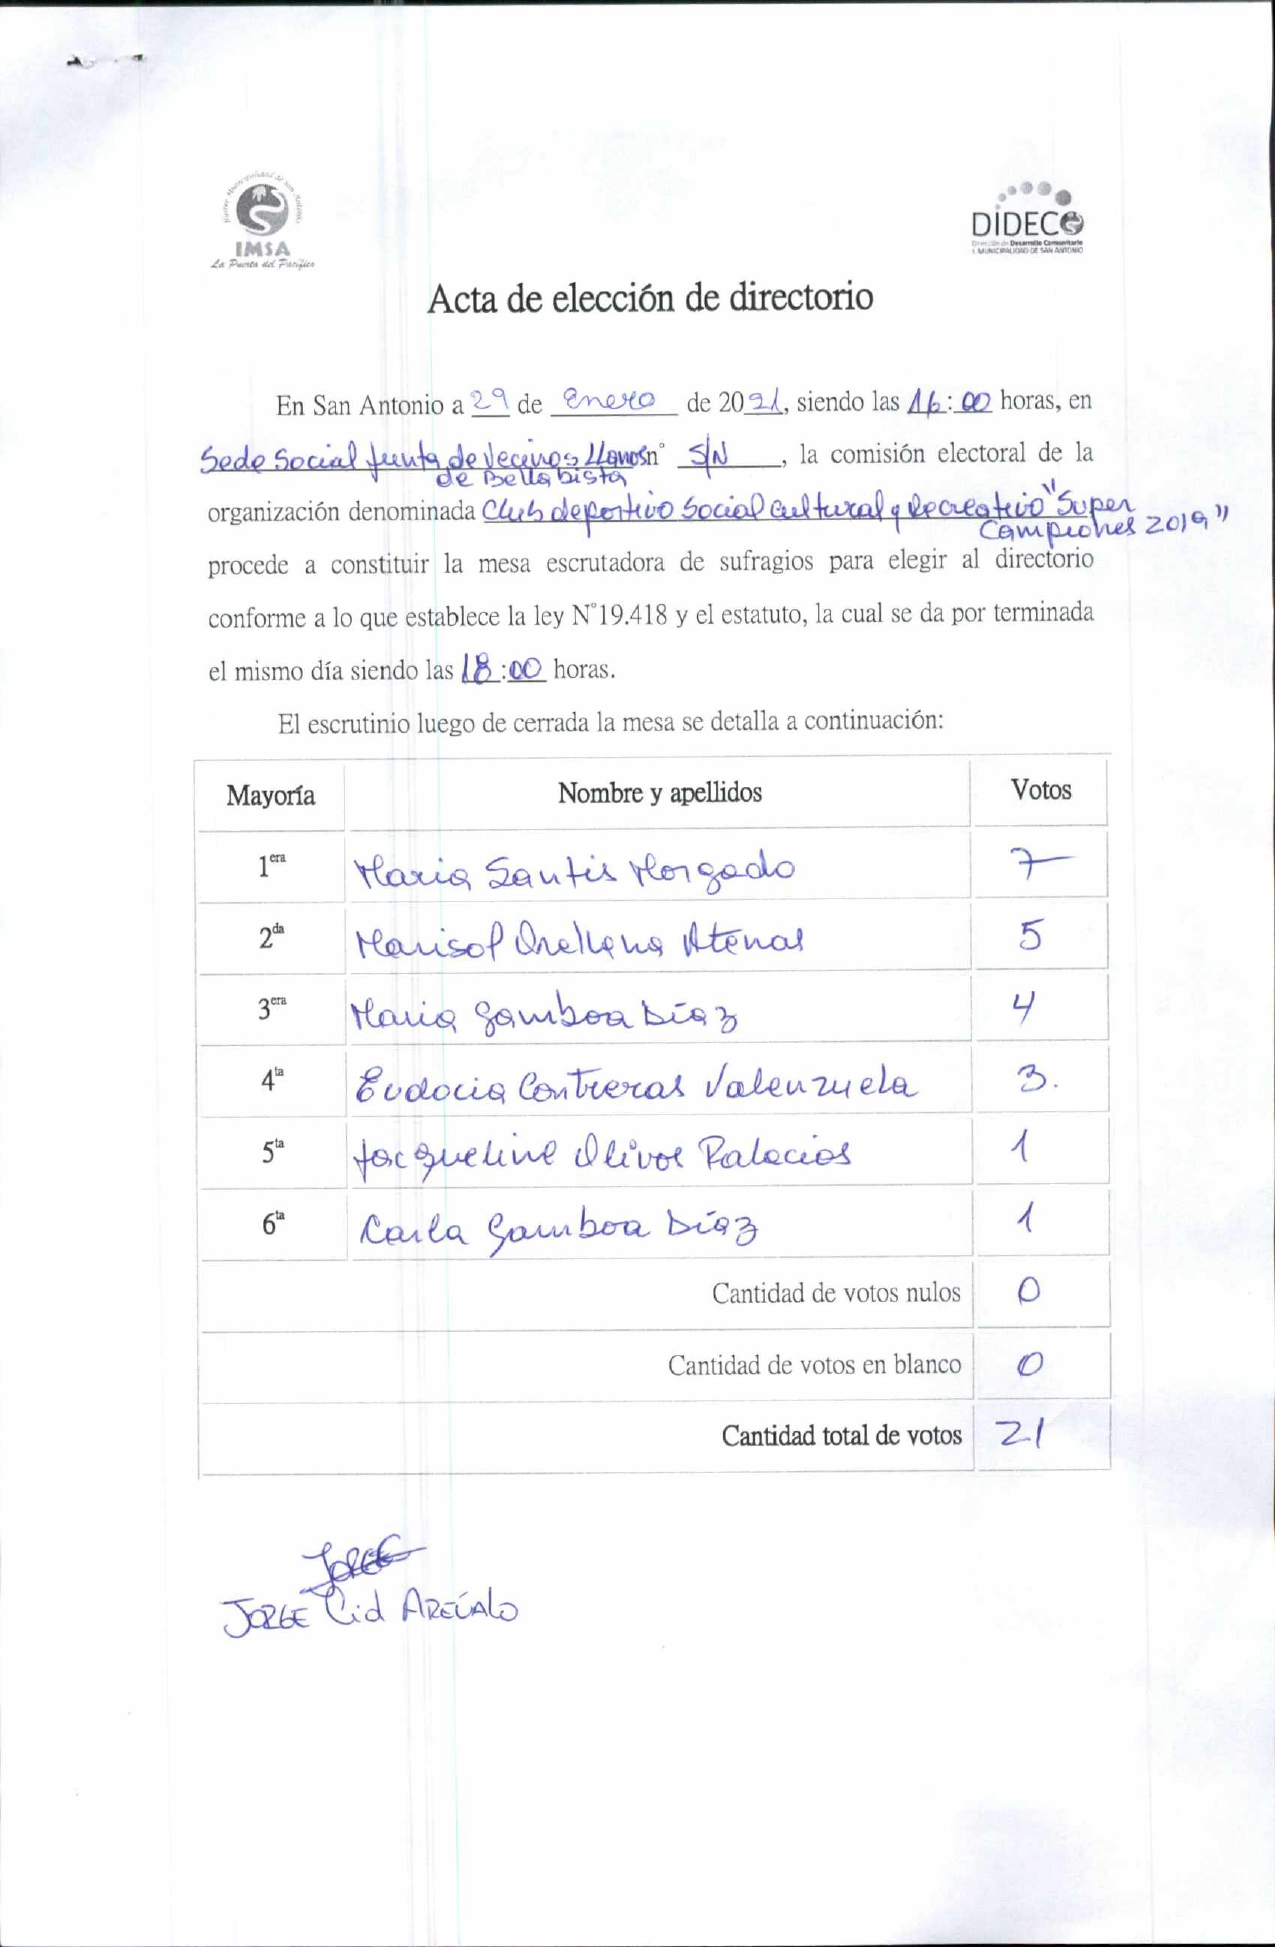 IMSA
La Puerta del Pacífico
DIDECO
Dirección de Desarrollo Comunitario
I. MUNICIPALIDAD DE SAN ANTONIO
Acta de elección de directorio
En San Antonio a 29 de Enero de 2021, siendo las 16:00 horas, en
Sede Social Junta de Vecinos Llanos n° S/N, la comisión electoral de la
de Bella bista
organización denominada Club deportivo Social Cultural y Recreativo "Super
Campeones 2019"
procede a constituir la mesa escrutadora de sufragios para elegir al directorio
conforme a lo que establece la ley N°19.418 y el estatuto, la cual se da por terminada
el mismo día siendo las 18:00 horas.
El escrutinio luego de cerrada la mesa se detalla a continuación:
Mayoría Nombre y apellidos Votos
1era Maria Santis Morgado 7
2da Marisol Orellana Atenas 5
3era Maria Gamboa Díaz 4
4ta Eudocia Contreras Valenzuela 3.
5ta Jacqueline Olivos Palacios 1
6ta Carla Gamboa Díaz 1
Cantidad de votos nulos 0
Cantidad de votos en blanco 0
Cantidad total de votos 21
JORGE
JORGE Cid ARÉVALO